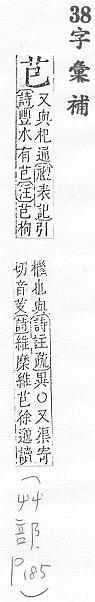 38 字彙補
芑
又與杞通禮表記引
詩豐水有芑注芑枸
檵也與詩註疏異○又渠寄
切音芰詩維穈維芑徐邈讀
(艸部 P185)